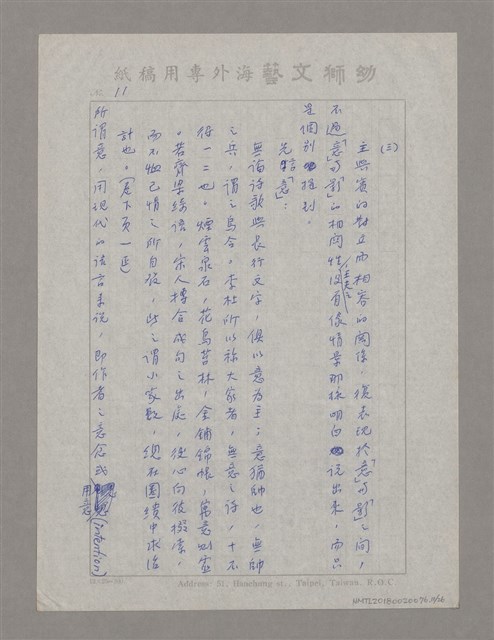 幼獅文藝海外專用稿紙
11
(三)
主與賓的對立而相容的關係,復表現於「意」與「影」之間,
不過「意」與「影」的相關性王夫之沒有像情景那樣明白說出來,而只
是個別提到。
先談「意」:
無論詩歌與長行文字,俱以意為主;意猶帥也,無帥
之兵,謂之烏合,李杜所以稱大家者,無意之詩,十不
得一二也。煙雲泉石,花鳥苔林,金鋪錦帳,寓意則靈
。若齊梁綺語,宋人摶合成句之出處,役心向彼掇索,
而不恤己情之所自發,此之謂小家數,總在圈繢中求活
計也。(見下頁一五)
所謂意,用現代的話言來說,即作者之意念或
用意(intention)
Address: 51, Hanchung st., Taipei, Taiwan, R.O.C